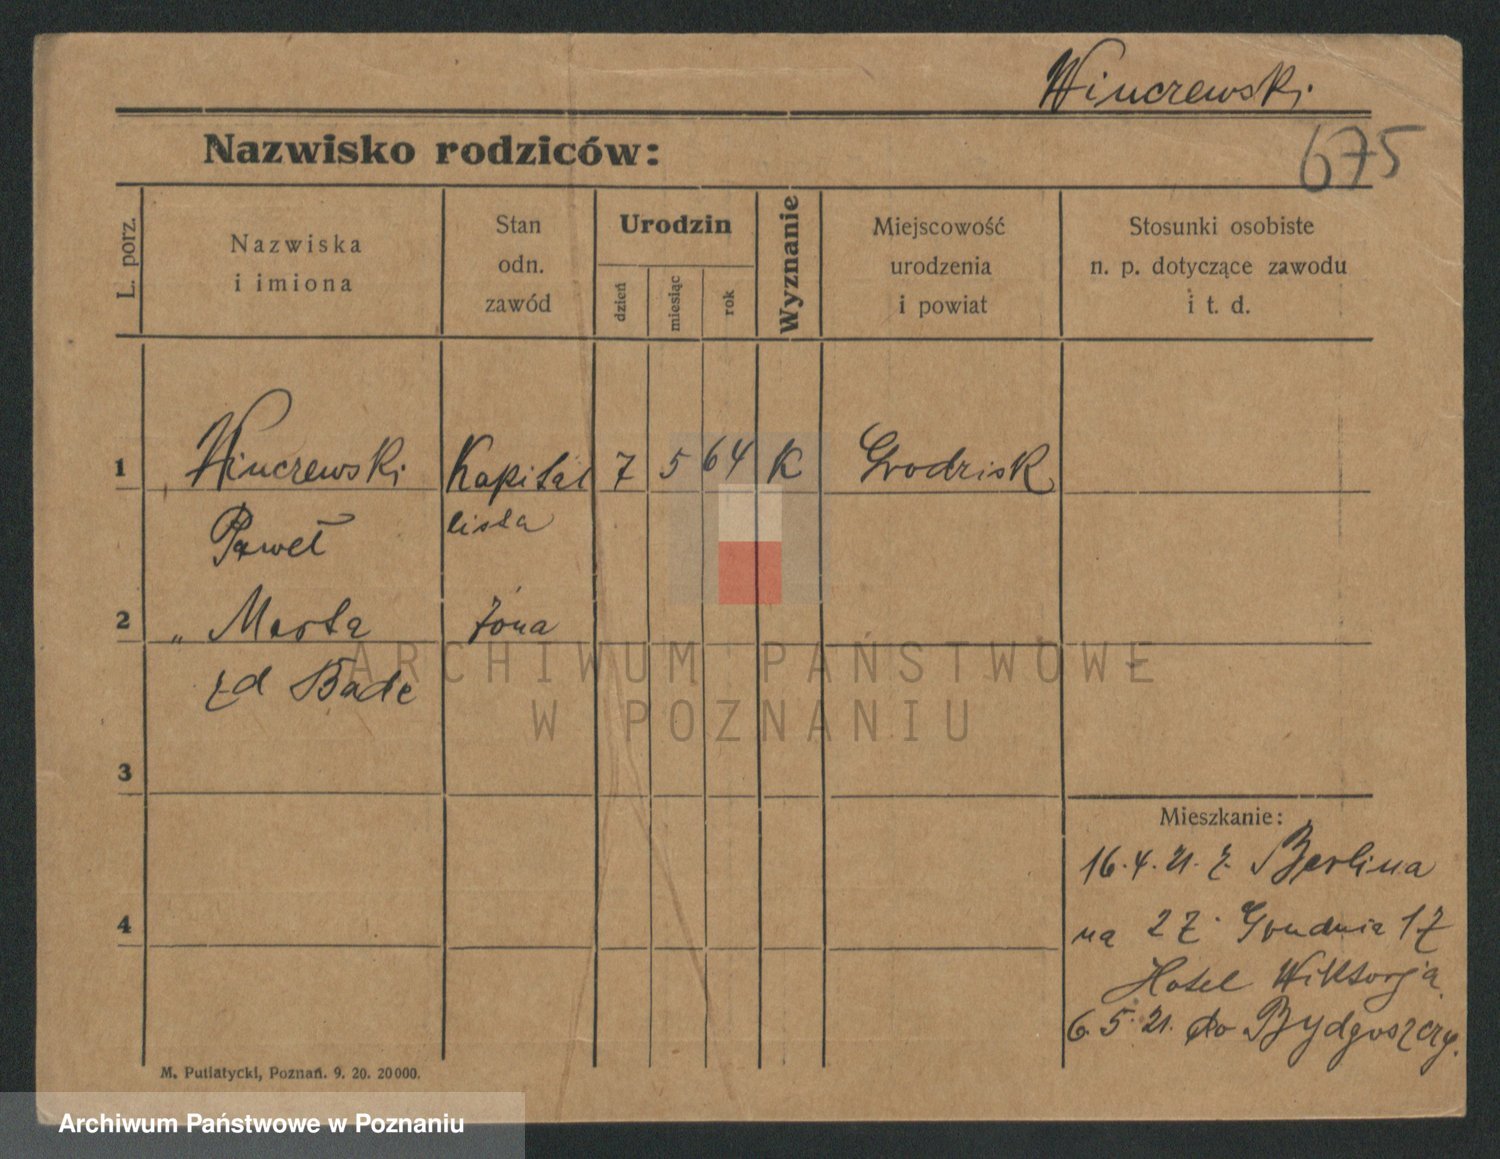 Winczewski
675
Nazwisko rodziców:
L. porz.
Nazwiska
i imiona
Stan
odn.
zawód
Urodzin
dzień
miesiąc
rok
Wyznanie
Miejscowość
urodzenia
i powiat
Stosunki osobiste
n. p. dotyczące zawodu
i t. d.
1 Winczewski Kapital 7 5 64 K Grodzisk
Paweł lista
2 " Marta żona
zd Bade
3
Mieszkanie:
16.4.21. z. Berlina
4
na 27 Grudnia 17
Hotel Wiktorja
6.5.21. do Bydgoszczy.
M. Putiatycki, Poznań. 9. 20. 20000.
ARCHIWUM PAŃSTWOWE
W POZNANIU
Archiwum Państwowe w Poznaniu